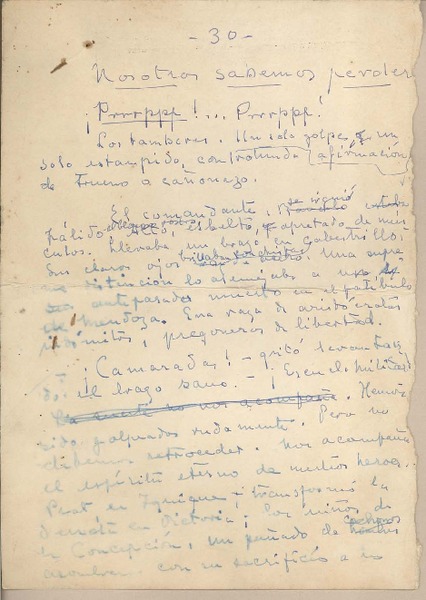 - 30 -
Nosotros sabemos perder
¡Prrrppf!... Prrrppf!
Los tambores. Un solo golpe, un
solo estampido, con rotunda afirmación
de trueno o cañonazo.
El comandante, se irguió
pálido, esbelto, apretado de mús
culos. Llevaba un brazo en cabestrillo.
Sus claros ojos Una supre
ma distinción lo asemejaba a
antepasado muerto en el patíbulo
de Mendoza. Era raza de aristócratas
indómitos, pregoneros de libertad.
¡Camaradas! - gritó levantan
do el brazo sano. - ¡
La suerte no nos acompaña. Hemos
sido golpeados rudamente. Pero no
debemos retroceder. Nos acompaña
el espíritu eterno de nuestros héroes.
Prat en Iquique, transformó la
derrota en Victoria; los niños de
la Concepción, un puñado de
con su sacrificio a